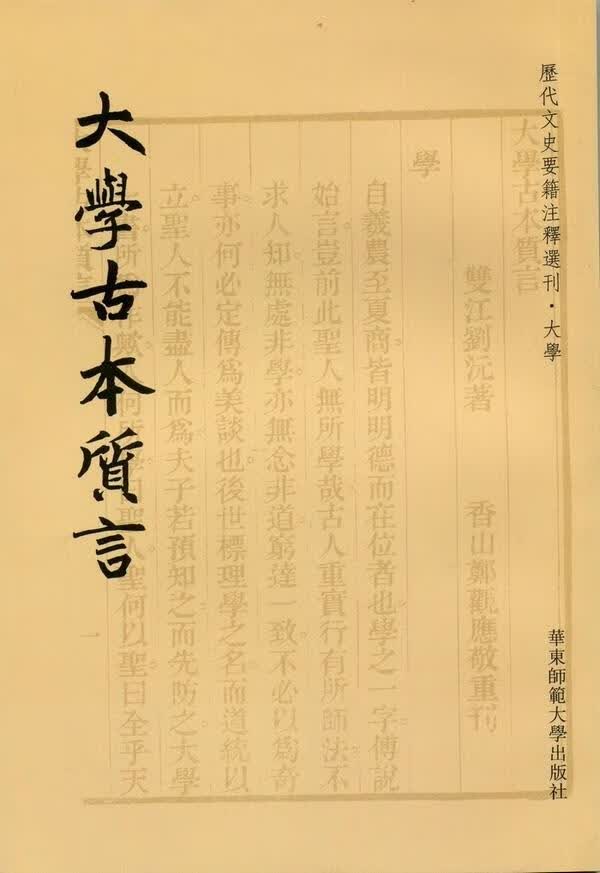 歷代文史要籍注釋選刊・大學
華東師範大學出版社
大學古本質言
大學古本質言
雙江劉沅著　香山鄭觀應敬重刊
學
自羲農至夏商皆明明德而在位者也學之一字傅說
始言豈前此聖人無所學哉古人重實行有所師法不
求人知無處非學亦無念非道窮達一致不必以為奇
事亦何必定傳為美談也後世標理學之名而道統以
立聖人不能盡人而為夫子若預知之而先防之大學
書所作歟何聖人聖何以聖曰全乎天
一